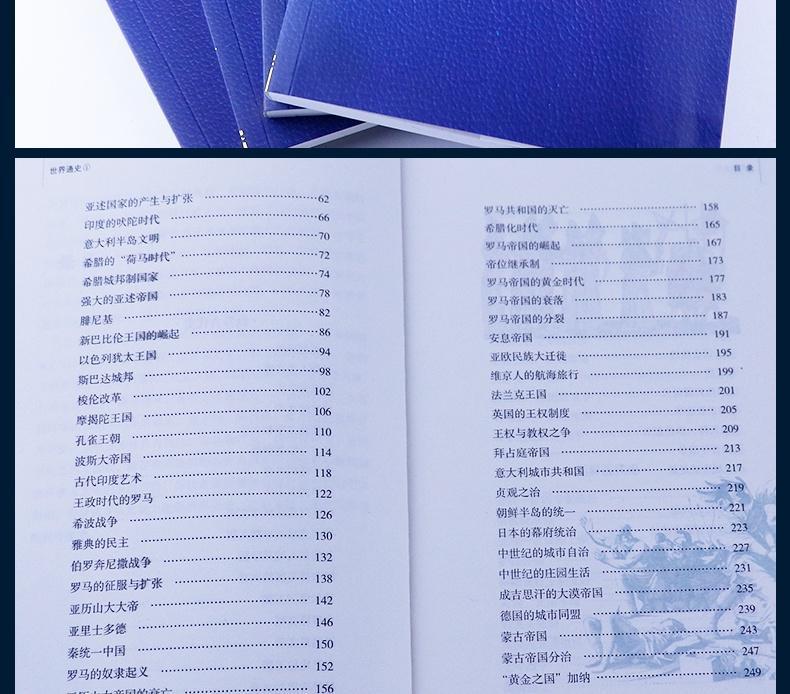 世界通史①
亚述国家的产生与扩张 62
印度的吠陀时代 66
意大利半岛文明 70
希腊的“荷马时代” 72
希腊城邦制国家 74
强大的亚述帝国 78
腓尼基 82
新巴比伦王国的崛起 86
以色列犹太王国 94
斯巴达城邦 98
梭伦改革 102
摩揭陀王国 106
孔雀王朝 110
波斯大帝国 114
古代印度艺术 118
王政时代的罗马 122
希波战争 126
雅典的民主 130
伯罗奔尼撒战争 132
罗马的征服与扩张 138
亚历山大大帝 142
亚里士多德 146
秦统一中国 150
罗马的奴隶起义 152
156
目 录
罗马共和国的灭亡 158
希腊化时代 165
罗马帝国的崛起 167
帝位继承制 173
罗马帝国的黄金时代 177
罗马帝国的衰落 183
罗马帝国的分裂 187
安息帝国 191
亚欧民族大迁徙 195
维京人的航海旅行 199
法兰克王国 201
英国的王权制度 205
王权与教权之争 209
拜占庭帝国 213
意大利城市共和国 217
贞观之治 219
朝鲜半岛的统一 221
日本的幕府统治 223
中世纪的城市自治 227
中世纪的庄园生活 231
成吉思汗的大漠帝国 235
德国的城市同盟 239
蒙古帝国 243
蒙古帝国分治 247
“黄金之国”加纳 249